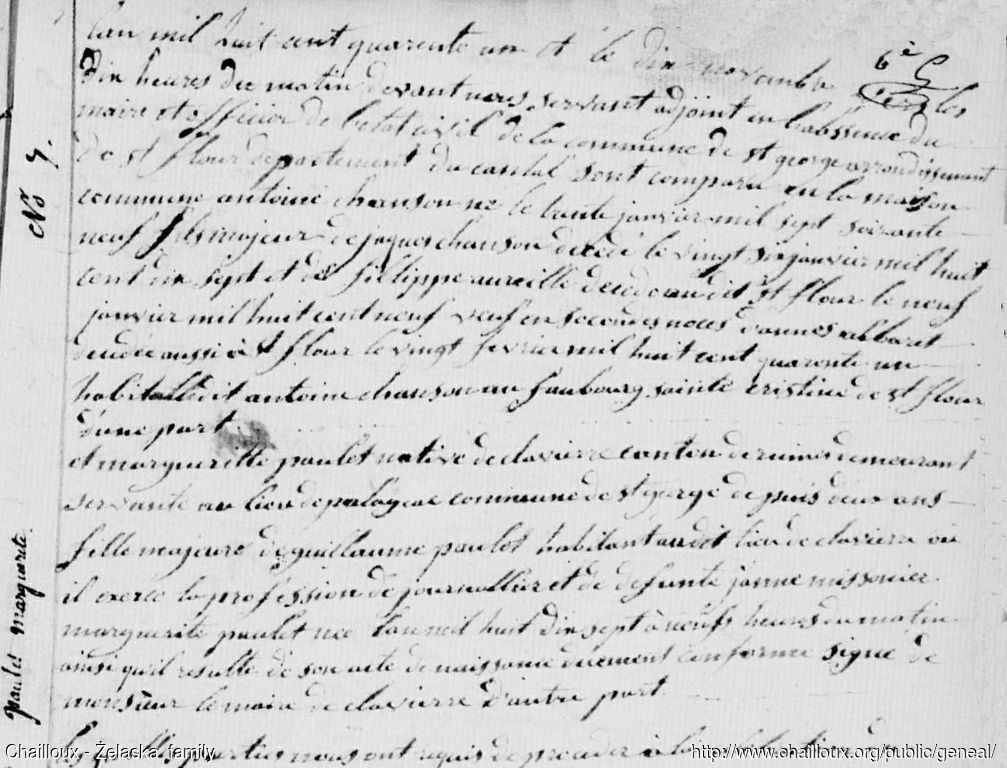 lan mil huit cent quarente un et le dix novembre
6e
les
dix heures du matin devant nous servant adjoint en labssence du
maire et officier de l'etat civil de la commune de st george arrondissement
de st flour departement du cantal sont comparu en la maison
commune antoine chanson né le trente janvier mil sept soixante
neuf fils majeur de jaques chanson decedé le vingt six janvier mil huit
cent dix sept et de fillippe aureille decedé audit st flour le neuf
janvier mil huit cent neuf veuf en secondes noces d'annes albaret
decedee aussi à st flour le vingt fevrier mil huit cent quarente un
habitant ledit antoine chanson au faubourg sainte cristine de st flour
d'une part
et margueritte paulet native de clavierre canton de ruines demeurant
servante au lieu de commune de st george depuis deux ans
fille majeure de guillaume paulet habitant audit lieu de clavierre ou
il exerce la profession de journallier et de defunte janne missonier
marguerite paulet nee lan mil huit dix sept à neufs heures du matin
ainsi qu'il resulte de son acte de naissance duement conforme signé de
monsieur le maire de clavierre d'autre part
les quelles parties nous ont requis de proceder à la
No 7.
paulet marguerite
Chailloux - Żelaska family
http://www.chailloux.org/public/geneal/